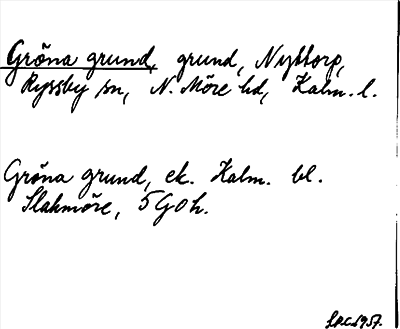 Gröna grund, grund, Nyttorp,
Ryssby sn, N. Möre hd, Kalm. l.
Gröna grund, ek. Kalm. bl.
Slakmöre, 5G0h.
1957.